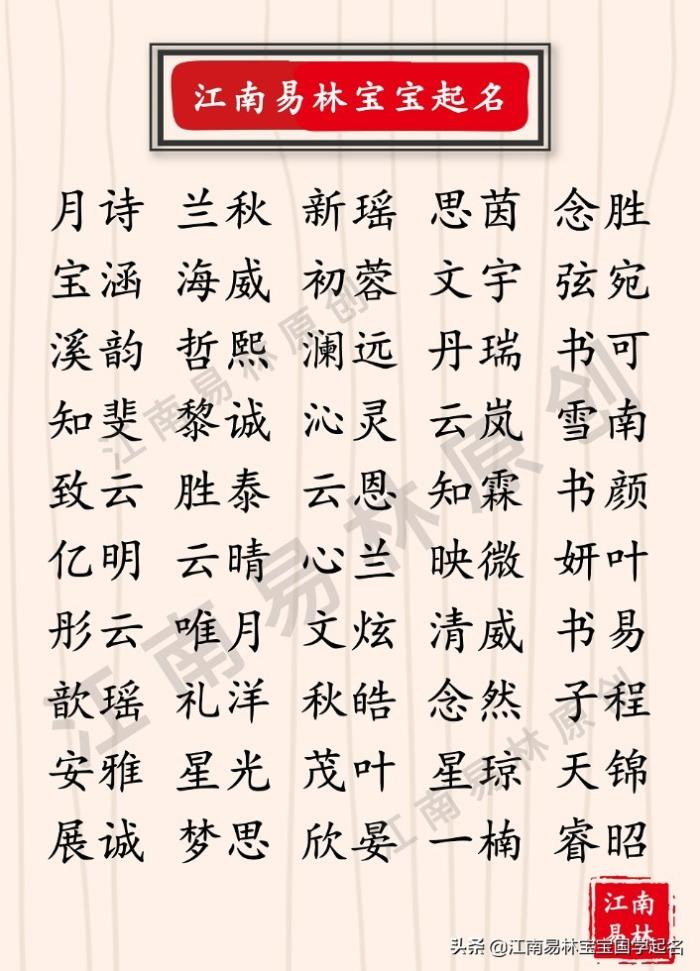 江南易林宝宝起名
月诗 兰秋 新瑶 思茵 念胜
宝涵 海威 初蓉 文宇 弦宛
溪韵 哲熙 澜远 丹瑞 书可
知斐 黎诚 沁灵 云岚 雪南
致云 胜泰 云恩 知霖 书颜
亿明 云晴 心兰 映微 妍叶
彤云 唯月 文炫 清威 书易
歆瑶 礼洋 秋皓 念然 子程
安雅 星光 茂叶 星琼 天锦
展诚 梦思 欣晏 一楠 睿昭
江南易林原创
江南易林原创
江南易林原创
江南
易林
头条 @江南易林宝宝国学起名